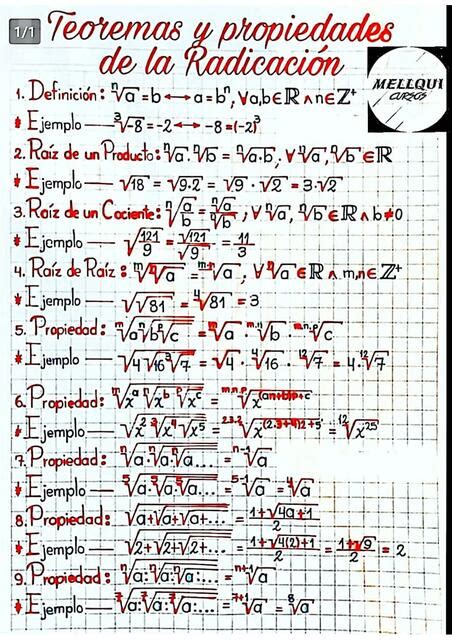 1/1
Teoremas y propiedades
de la Radicación
MELLQUI
CURSOS
1. Definición: ⁿ√a = b ↔ a = bⁿ, ∀a,b∈ℝ ∧ n∈ℤ⁺
* Ejemplo — ³√-8 = -2 ↔ -8 = (-2)³
2. Raíz de un Producto: ⁿ√a · ⁿ√b = ⁿ√a·b, ∀ ⁿ√a, ⁿ√b ∈ ℝ
* Ejemplo — √18 = √9·2 = √9 · √2 = 3·√2
3. Raíz de un Cociente: ⁿ√(a/b) = ⁿ√a/ⁿ√b; ∀ ⁿ√a, ⁿ√b ∈ ℝ ∧ b≠0
* Ejemplo — √(121/9) = √121/√9 = 11/3
4. Raíz de Raíz: ᵐ√(ⁿ√a) = ᵐ·ⁿ√a, ∀ ⁿ√a ∈ ℝ ∧ m,n∈ ℤ⁺
* Ejemplo — √(√81) = ⁴√81 = 3
5. Propiedad: ᵐ√(a ⁿ√(b ᵖ√c)) = ᵐ√a · ᵐ·ⁿ√b · ᵐ·ⁿ·ᵖ√c
* Ejemplo — √(4 √(16 ³√7)) = √4 · ⁴√16 · ¹²√7 = 4·¹²√7
6. Propiedad: ᵐ√(xᵃ ⁿ√(xᵇ ᵖ√(xᶜ))) = ᵐ·ⁿ·ᵖ√(x^((an+b)p+c))
* Ejemplo — √(x² ³√(x⁴ √(x⁵))) = ²·³·²√(x^((2·3+4)2+5)) = ¹²√(x²⁵)
7. Propiedad: ⁿ√(a·ⁿ√(a·ⁿ√(a...))) = ⁿ⁻¹√a
* Ejemplo — ⁵√(a·⁵√(a·⁵√(a...))) = ⁵⁻¹√a = ⁴√a
8. Propiedad: √(a+√(a+√(a+...))) = (1+√(4a+1))/2
* Ejemplo — √(2+√(2+√(2+...))) = (1+√(4(2)+1))/2 = (1+√9)/2 = 2
9. Propiedad: ⁿ√(a:ⁿ√(a:ⁿ√(a:...))) = ⁿ⁺¹√a
* Ejemplo — ⁷√(a:⁷√(a:⁷√(a:...))) = ⁷⁺¹√a = ⁸√a